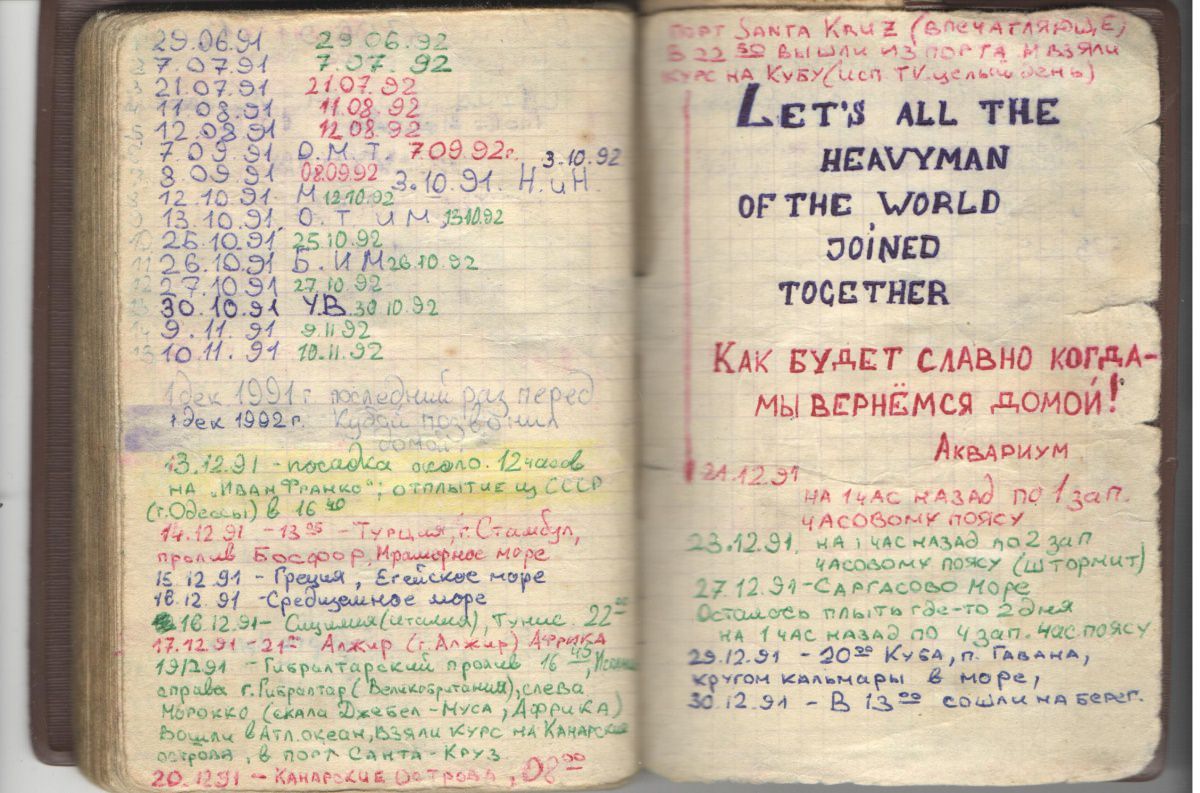 29.06.91 29 06.92
7.07.91 7.07.92
21.07.91 21.07.92
11.08.91 11.08.92
12.08.91 12 08.92
7.09.91 О.М.Т. 7.09.92г. 3.10.92
8.09.91 08.09.92 3.10.91. Н.иН.
12.10.91 М 12.10.92
13.10.91. О.Т. и М, 13.10.92
25.10.91 25.10.92
26.10.91 Б. и М 26.10.92
27.10.91 27.10.92
30.10.91 У.В. 30 10.92
9.11.91 9.11 92
10.11.91 10.11.92
1 дек 1991 г последний раз перед
1 дек 1992 г. Кубой позвонил
домой
13.12.91 - посадка около 12 часов
на „Иван Франко“; отплытие из СССР
(г.Одессы) в 16 40
14.12.91 - 13 05 - Турция, г. Стамбул,
пролив Босфор, Мраморное море
15.12.91 - Греция, Егейское море
16.12.91 - Средиземное море
16.12.91 - Сицилия (италия), Тунис. 22 00
17.12.91 - 21 00 Алжир (г. Алжир) Африка
19.12.91 - Гибралтарский пролив 16 45,
справа г. Гибралтар (Великобритания), слева
Морокко (скала Джебел-Муса, Африка)
Вошли в Атл.океан, взяли курс на Канарские
острова, в порт Санта-Круз
20.12.91 - Канарские острова, 08 00
порт Santa Kruz (впечатляюще)
В 22 50 вышли из порта и взяли
курс на Кубу (исп TV целый день)
LET'S ALL THE
HEAVYMAN
OF THE WORLD
JOiNED
TOGETHER
Как будет славно когда-
мы вернёмся домой!
Аквариум
21.12.91
на 1 час назад по 1 зап.
часовому поясу
23.12.91. на 1 час назад по 2 зап
часовому поясу (штормит)
27.12.91 - Саргасово море
Осталось плыть где-то 2 дня
на 1 час назад по 4 зап. час.поясу
29.12.91 - 20 00 Куба, п. Гавана,
кругом кальмары в море,
30.12.91 - В 13 00 сошли на берег.